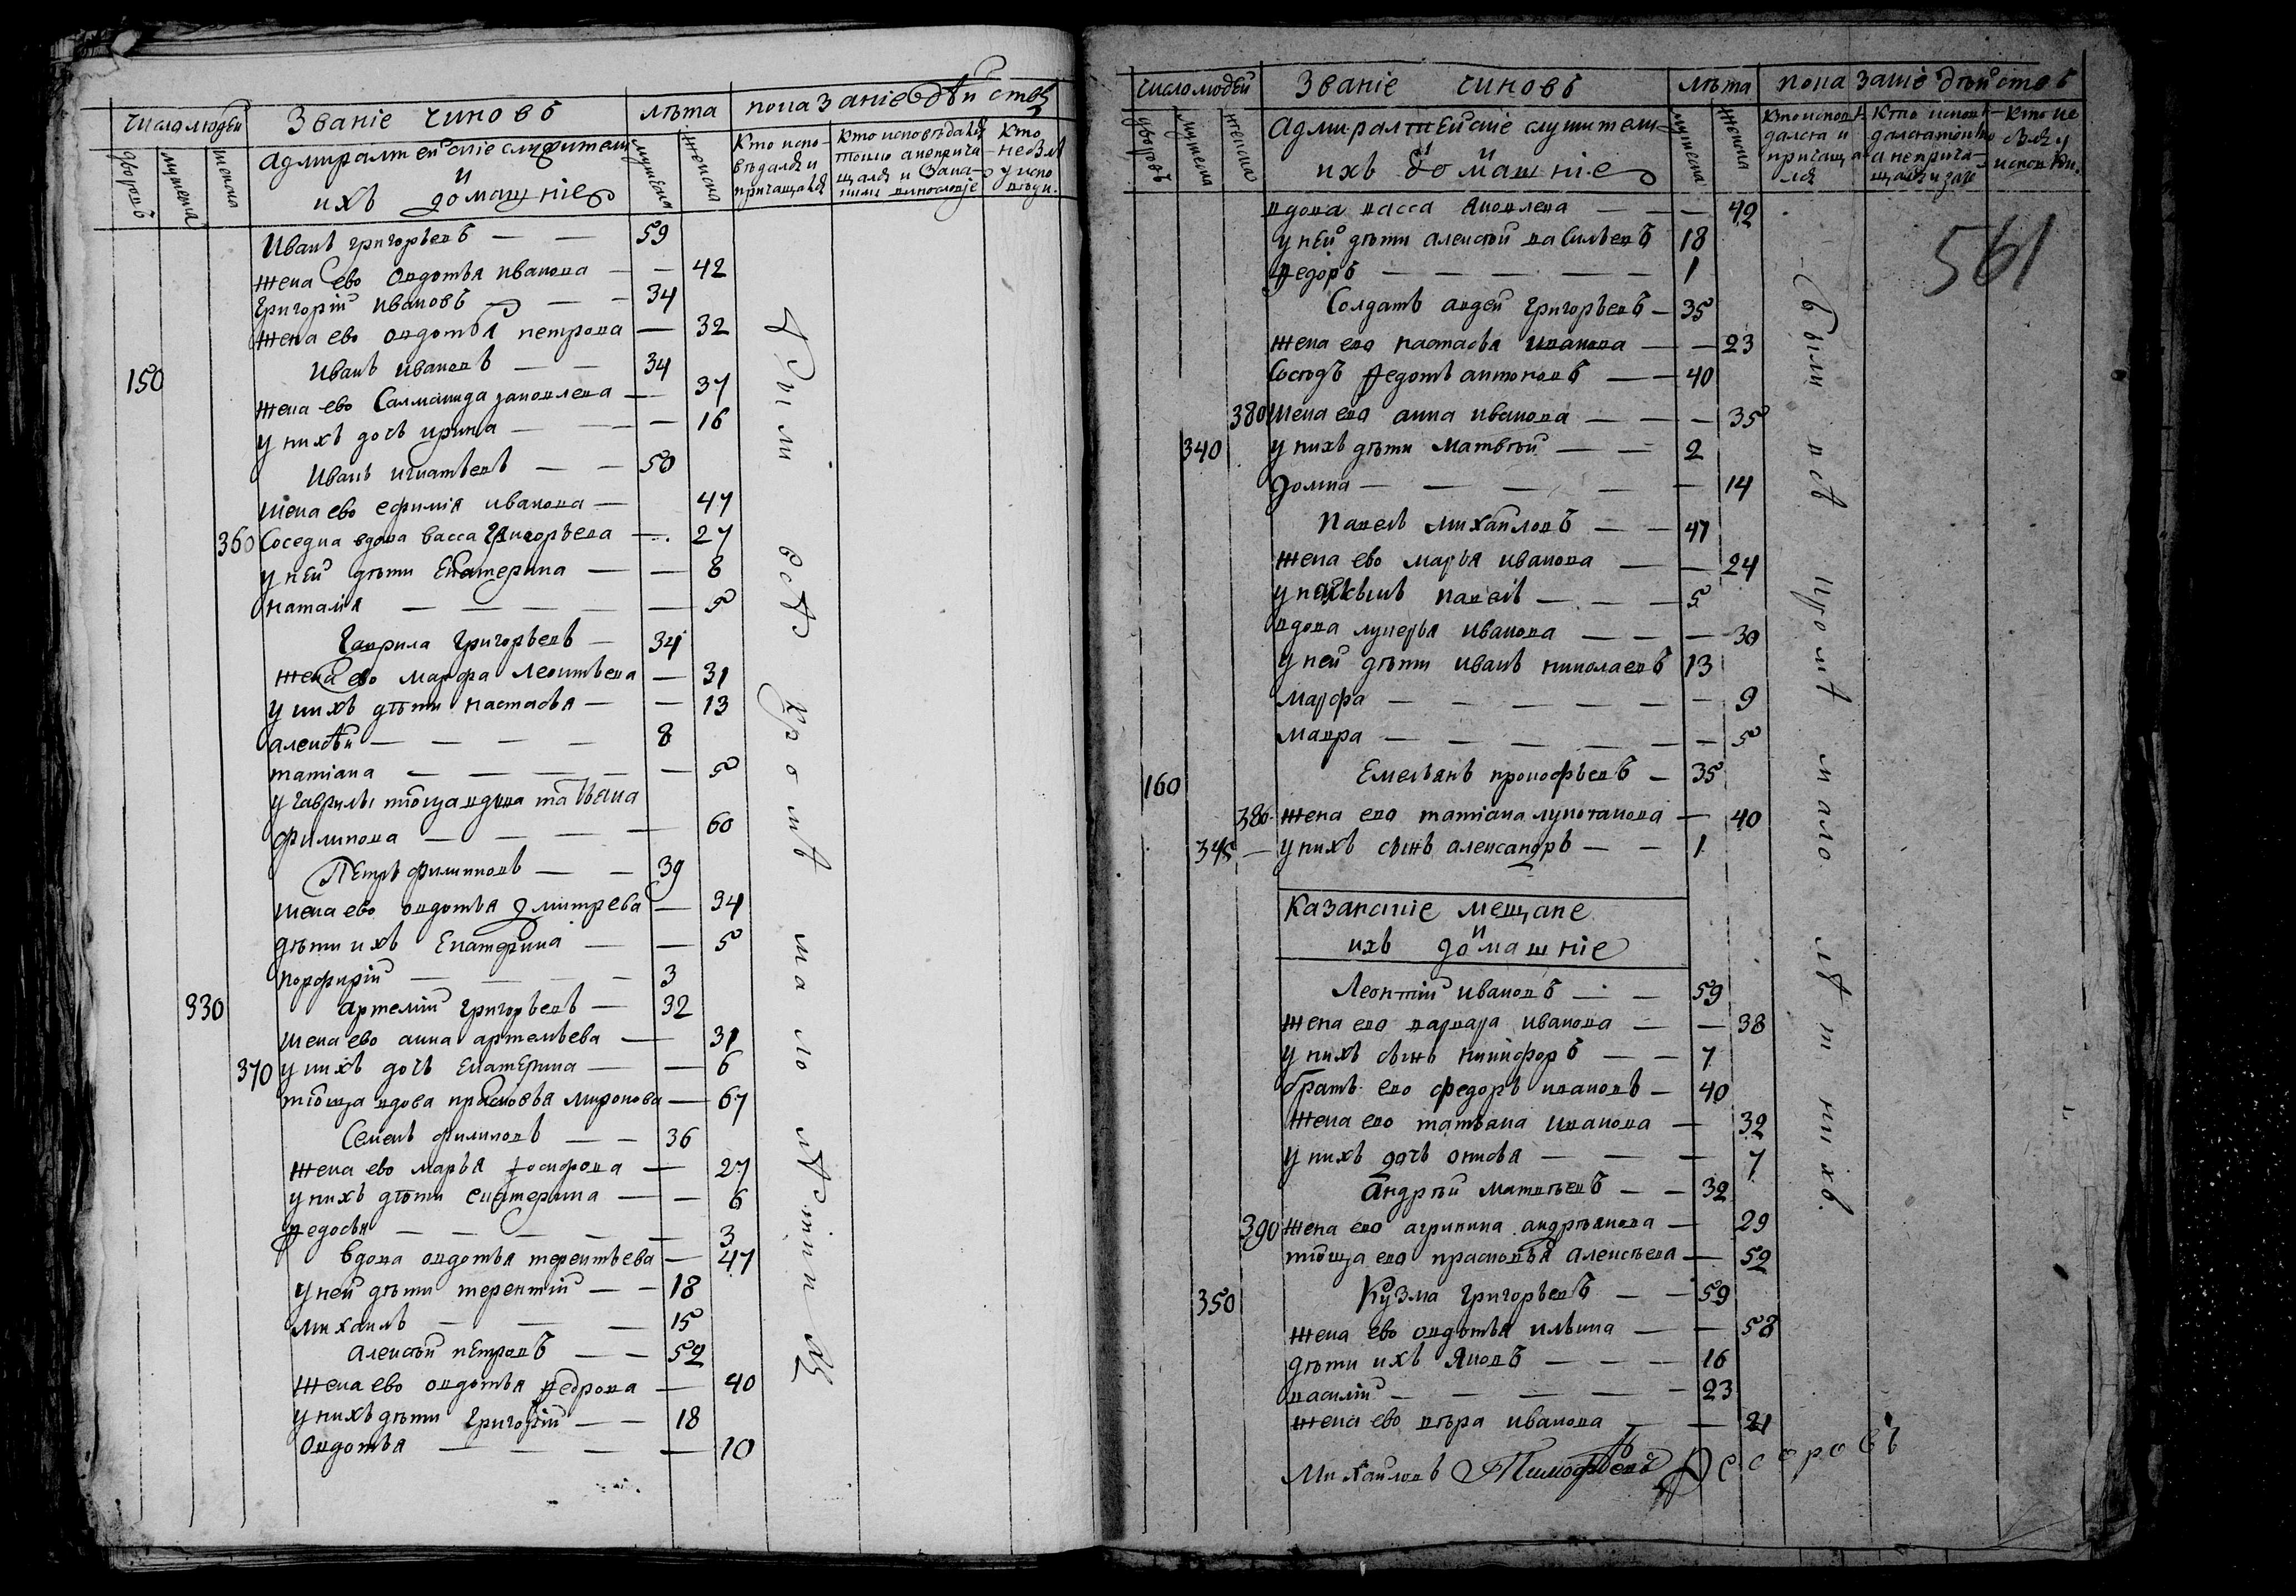 число людей
Званіе чиновъ
лѣта
показаніе дѣйствъ
дворовъ
мужеска
женска
адмиралтейскіе служители
и
ихъ домашніе
мужеска
женска
Кто испо-
вѣдался и
причащался
кто исповѣдался
токмо а неприча
щался и за ка-
кимъ винословіе
Кто
не былъ
у испо
вѣди.
Иванъ григорьевъ — — 59
жена ево овдотья иванова — — 42
Григорій ивановъ — — 34
жена ево овдотья петрова — 32
150 Иванъ ивановъ — — 34
жена ево Салманида яковлева — 37
у нихъ дочь ирина — — — 16
Иванъ игнатьевъ — — 50
жена ево ефимія иванова — 47
360 Соседка вдова васса Григорьева — 27
у ней дѣти Екатерина — — 8
наталія — — — — — 5
Гаврила Григорьевъ — 34
жена ево марфа Леонтьева — 31
у нихъ дѣти настасья — — 13
алексѣй — — — — 8
татіана — — — — — 5
у Гаврилы тѣоща вдова татьяна
филипова — — — — 60
Петръ филиповъ — — 39
жена ево овдотья дмитрева — 34
дѣти ихъ Екатерина — — 5
порфирій — — — — 3
330 артемій Григорьевъ — 32
жена ево анна артемьева — 31
370 у нихъ дочь Екатерина — — 6
тѣоща вдова прасковья миронова — 67
Семенъ филиповъ — — 36
жена ево марья осифова — 27
у нихъ дѣти екатерина — — 6
федосья — — — — — 3
вдова овдотья терентьева — 47
у ней дѣти терентій — — 18
михаилъ — — — 15
алексѣй петровъ — — 52
жена ево овдотья федрова — 40
у нихъ дѣти Григорій — — 18
Овдотья — — — — 10
были всѣ кромѣ мало лѣтнихъ
число людей
Званіе чиновъ
лѣта
показаніе дѣйствъ
561
дворовъ
мужеска
женска
адмиралтейскіе служители
и
ихъ домашніе
мужеска
женска
Кто исповѣ
дался и
причащал
ся
Кто исповѣ
дался токмо
а неприча-
щался и за че
Кто не
былъ у
исповѣди.
вдова васса яковлева — — — 42
у ней дѣти алексѣй васильевъ 18
федоръ — — — — — 1
Солдатъ авдей Григорьевъ — 35
жена ево настасья иванова — — 23
Соседъ федотъ антоновъ — — 40
380 жена ево анна иванова — — — 35
340 у нихъ дѣти матвѣй — — 2
домна — — — — — 14
Павелъ михайловъ — — 47
жена ево марья иванова — — 24
у нихъ сынъ павелъ — — — 5
вдова лукерья иванова — — — 30
у ней дѣти иванъ николаевъ 13
марфа — — — — — — 9
мавра — — — — — — 5
160 Емельянъ прокофьевъ — 35
386 жена ево татіана — 40
345 — у нихъ сынъ александръ — — 1
Казанскіе мещане
и
ихъ домашніе
Леонтій ивановъ — — 59
жена ево варвара иванова — — 38
у нихъ сынъ никифоръ — — 7
братъ ево федоръ ивановъ — 40
жена ево татьяна иванова — 32
у нихъ дочь онисья — — — 7
андрѣй матвѣевъ — — 32
390 жена ево агрипина андрѣянова — 29
тѣоща ево прасковья алексѣева — 52
350 Кузма Григорьевъ — — 59
жена ево овдотья ильина — — 58
дѣти ихъ яковъ — — — 16
василій — — — — — 23
жена ево вѣра иванова — — 21
были всѣ кромѣ мало лѣтнихъ.
Михайловъ Тимофѣевъ Ѳедоровъ